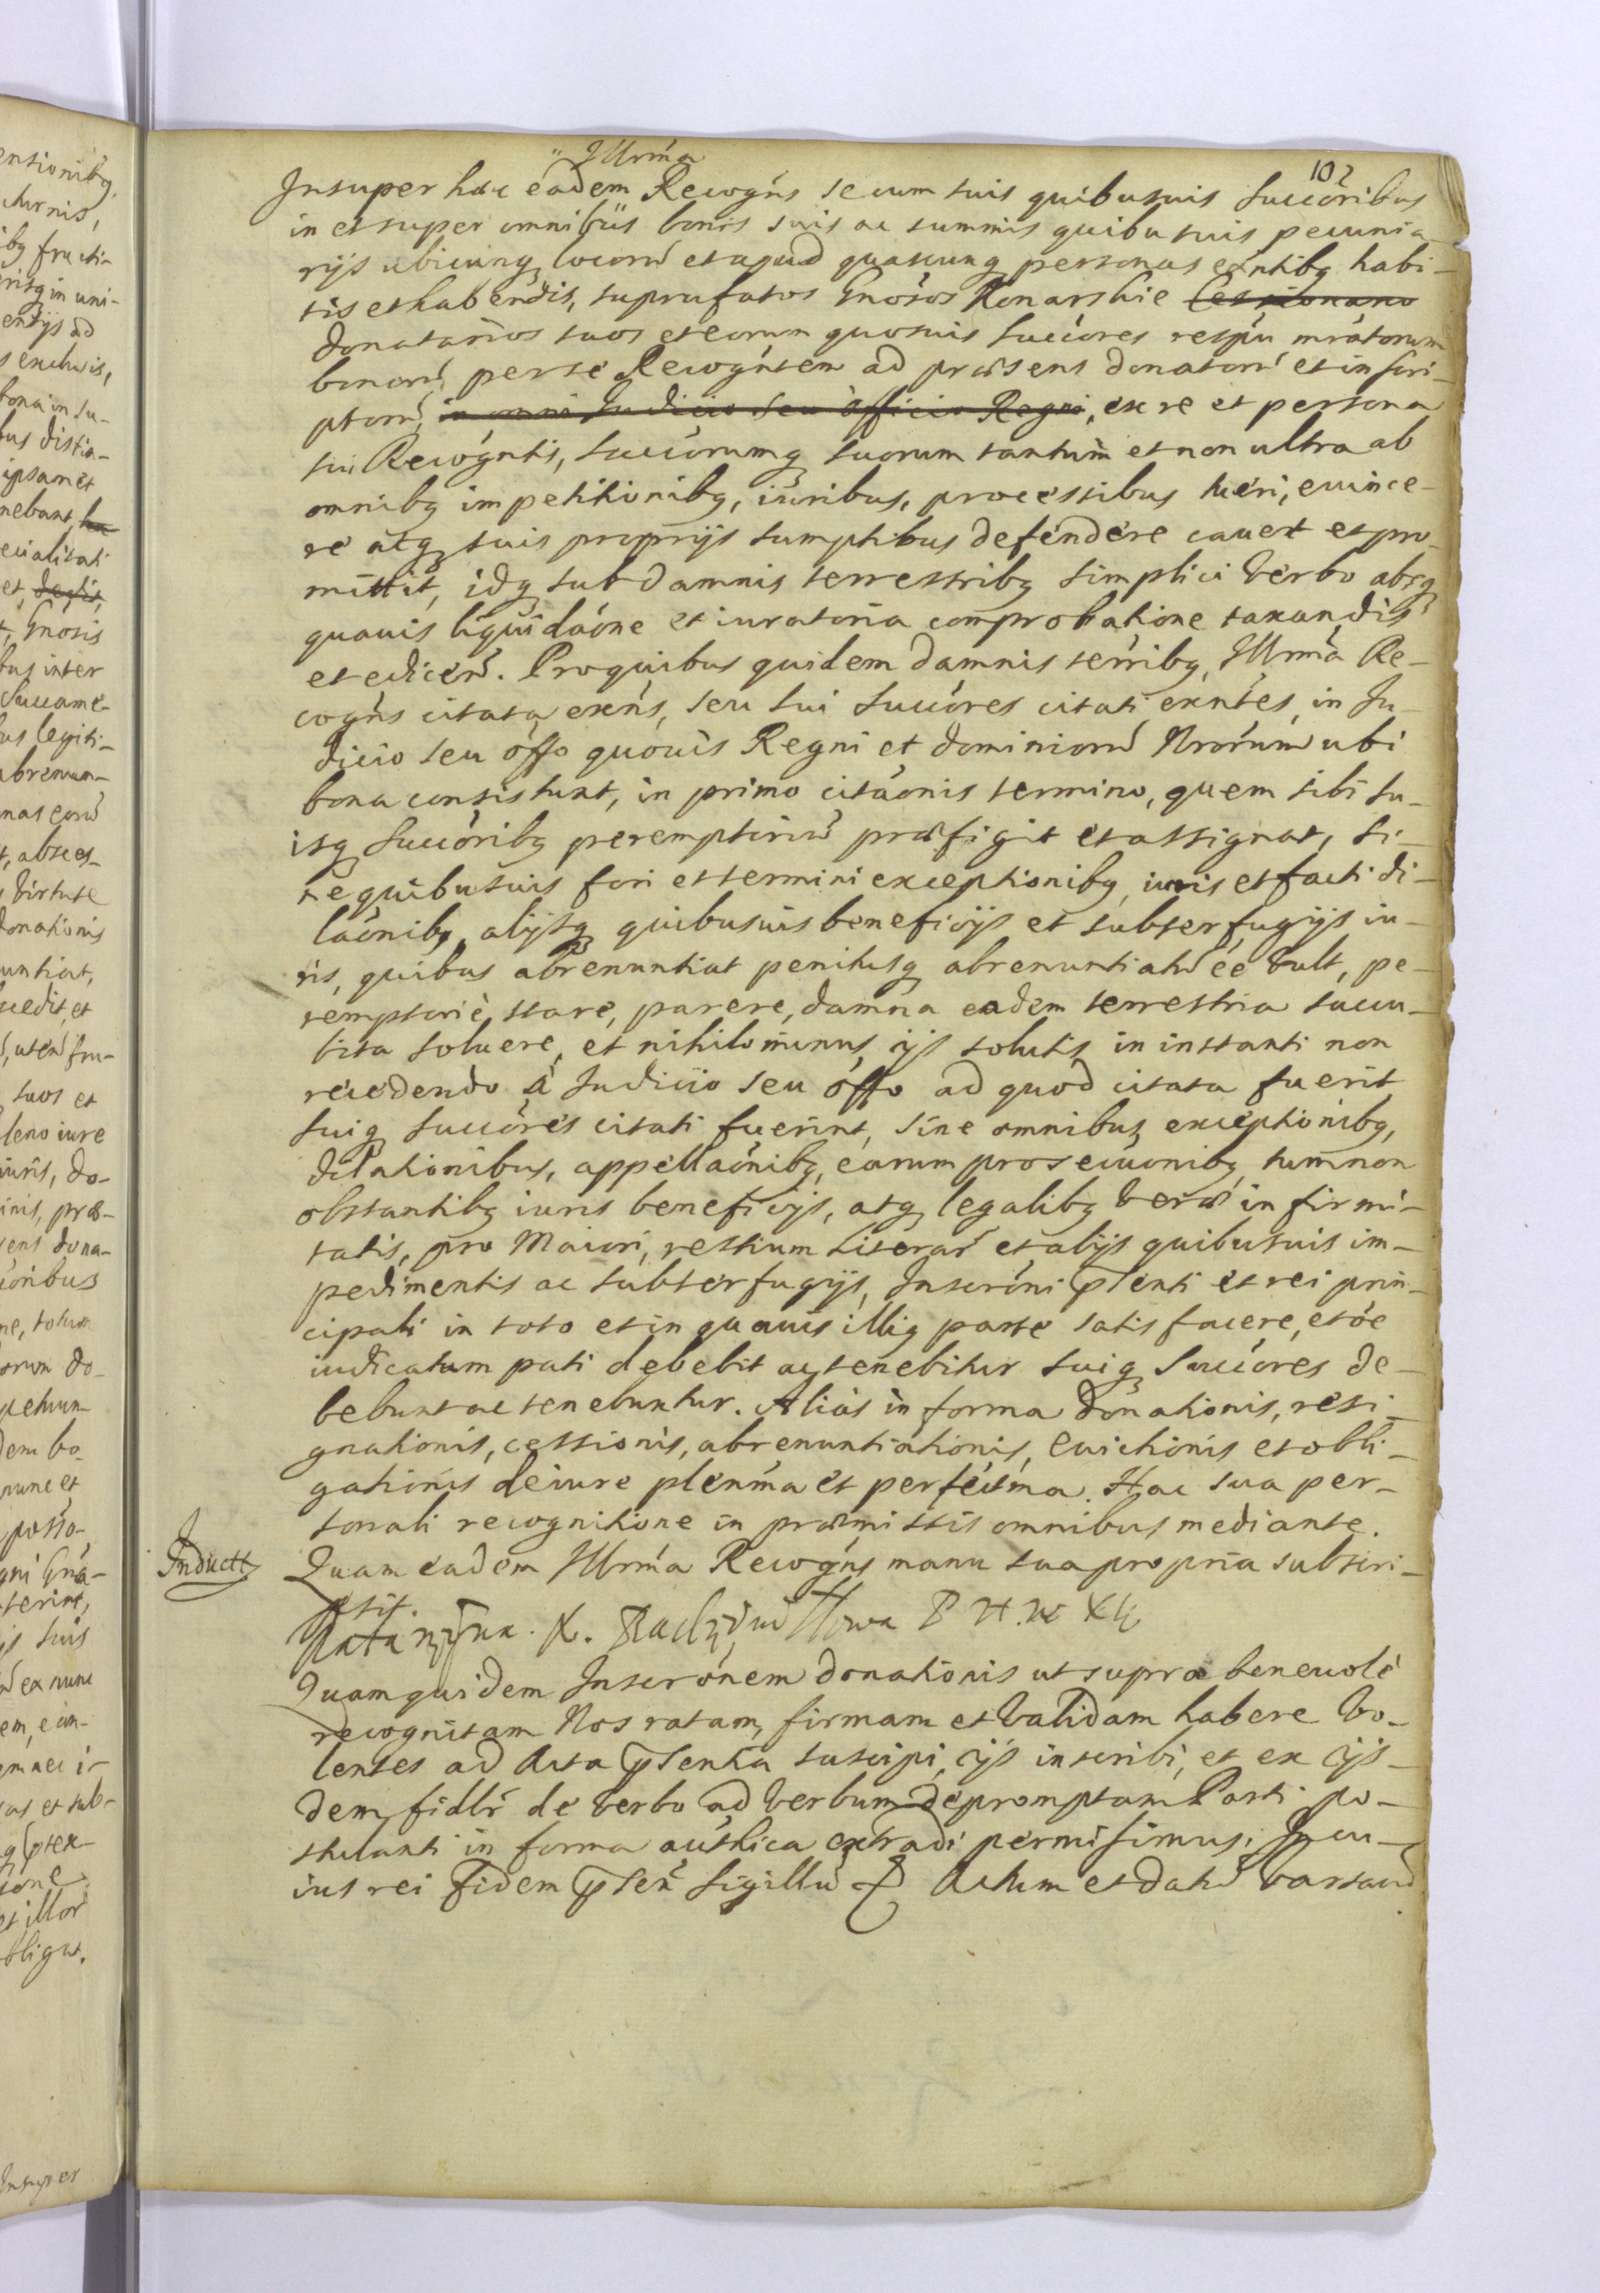 102
Illrma
Insuper haec eadem Recogns se cum suis quibusuis Succoribus
in et super omnibus bonis suis ac summis quibusuis pecunia-
rijs ubicunq locorū et apud quascunq personas exntibq habi-
tis et habendis, supra fatos Gnosos Konarskie Cessionario
donatarios suos et eorum quosuis Succores respu mratorum
bonorū, per se Recogntem ad praesens donatorū et inscri-
ptorū, in omni Judicio seu officio Regni, ex re et persona
sui Recogntis, Succorumq suorum tantum et non ultra ab
omnibq impetitionibq, iuribus, processibus tueri, euince-
re atq suis proprijs sumptibus defendere cauet et pro-
mittit, idq sub damnis terrestribq simplici verbo absq
quauis liquidaone et iuratoria comprobatione taxandis
et edicen. Pro quibus quidem damnis terribq, Illrma Re-
cogns citata exns, seu sui Succores citati exntes, in Ju-
dicio seu offo quouis Regni et dominiorū Nrorum ubi
bona consistunt, in primo citaonis termino, quem sibi su-
isq Succoribq peremptoriū praefigit et assignat, si-
ne quibusuis fori et termini exceptionibq, iuris et facti di-
laonibq, alijsq quibusuis beneficijs et subterfugijs iu-
ris, quibus abrenuntiat penitusq abrenuntiatū ee vult, pe-
remptorie stare, parere, damna eadem terrestria succu-
bita soluere, et nihilominus ijs solutis in instanti non
recedendo à Judicio seu offo ad quod citata fuerit
suiq Succores citati fuerint, sine omnibus exceptionibq,
dilationibus, appellaonibq, earum prosecuonibq, tum non
obstantibq iuris beneficijs, atq legalibq verae infirmi-
tatis, pro Maiori, restium Literar et alijs quibusuis im-
pedimentis ac subterfugijs, Inscroni pnti et rei prin-
cipali in toto et in quauis illiq parte satisfacere, et oe
iudicatum pati debebit ac tenebitur suiq Succores de-
bebunt ac tenebuntur. Alias in forma donationis, resi-
gnationis, cessionis, abrenuntiationis, euictionis et obli-
gationis de iure plenma et perfectma. Hac sua per-
sonali recognitione in praemissis omnibus mediante.
Inductt
Quam eadem Illrma Recogns manu sua propria subscri-
psit.
Katarzyna K. Radziwiłłowa P H W X L
Quam quidem Inscronem donationis ut supra beneuole
recognitam Nos ratam, firmam et validam habere vo-
lentes ad Acta pntia suscipi, ijs inscribi, et ex ijs-
dem fidlr de verbo ad verbum depromptam Parti po-
stulanti in forma authica extradi permisimus. In cu-
ius rei fidem psen Sigillū Actum et datū Varsauiae